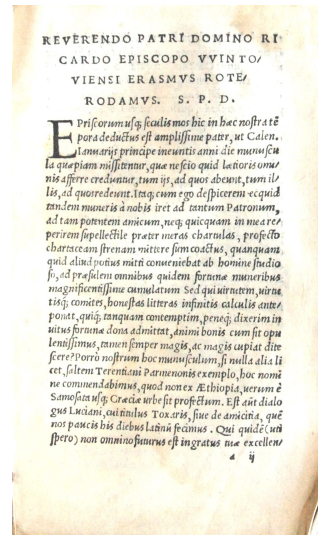 REVERENDO PATRI DOMINO RI
CARDO EPISCOPO VVINTO/
VIENSI ERASMVS ROTE/
RODAMVS. S. P. D.
E Priscorum usq; seculis mos hic in hæc nostra tē
pora deductus est amplissime pater, ut Calen.
Ianuarijs principe ineuntis anni die munuscu
la quæpiam missitentur, quæ nescio quid lætioris omi/
nis afferre creduntur, tum ijs, ad quos abeunt, tum il/
lis, ad quos redeunt. Itaq; cum ego despicerem ecquid
tandem muneris à nobis iret ad tantum Patronum,
ad tam potentem amicum, neq; quicquam in mea re/
perirem supellectile præter meras chartulas, profecto
chartaceam strenam mittere sum coactus, quanquam
quid aliud potius mitti conueniebat ab homine studio
so, ad præsulem omnibus quidem fortunæ muneribus
magnificentissime cumulatum Sed qui uirtutem, uirtu
tisq; comites, honestas litteras infinitis calculis ante/
ponat, quiq; tanquam contemptim, peneq; dixerim in
uitus fortunæ dona admittat, animi bonis cum sit opu
lentissimus, tamen semper magis, ac magis cupiat dite
scere? Porrò nostrum hoc munusculum, si nulla alia li
cet, saltem Terentiani Parmenonis exemplo, hoc nomi
ne commendabimus, quod non ex Æthiopia, uerum è
Samosata usq; Græciæ urbe sit profectum. Est aūt dialo
gus Luciani, cui titulus Toxaris, siue de amicitia, quē
nos paucis his diebus latinū fecimus. Qui quidē (uti
spero) non omnino futurus est ingratus tuæ excellen/
a ij